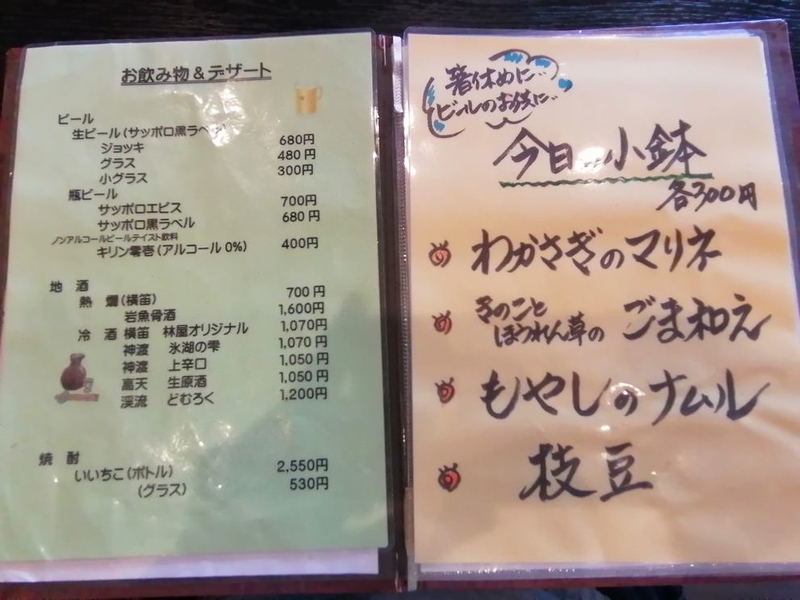 お飲み物＆デザート
ビール
生ビール（サッポロ黒ラベル）
ジョッキ 680円
グラス 480円
小グラス 300円
瓶ビール
サッポロエビス 700円
サッポロ黒ラベル 680円
ノンアルコールビールテイスト飲料
キリン零壱（アルコール0％） 400円
地酒
熱燗（横笛） 700円
岩魚骨酒 1,600円
冷酒 横笛 林屋オリジナル 1,070円
神渡 氷湖の雫 1,070円
神渡 上辛口 1,050円
高天 生原酒 1,050円
渓流 どむろく 1,200円
焼酎
いいちこ（ボトル） 2,550円
（グラス） 530円
箸休めに…
ビールのお供に…
今日の小鉢
各300円
わかさぎのマリネ
きのこと
ほうれん草の ごま和え
もやしのナムル
枝豆